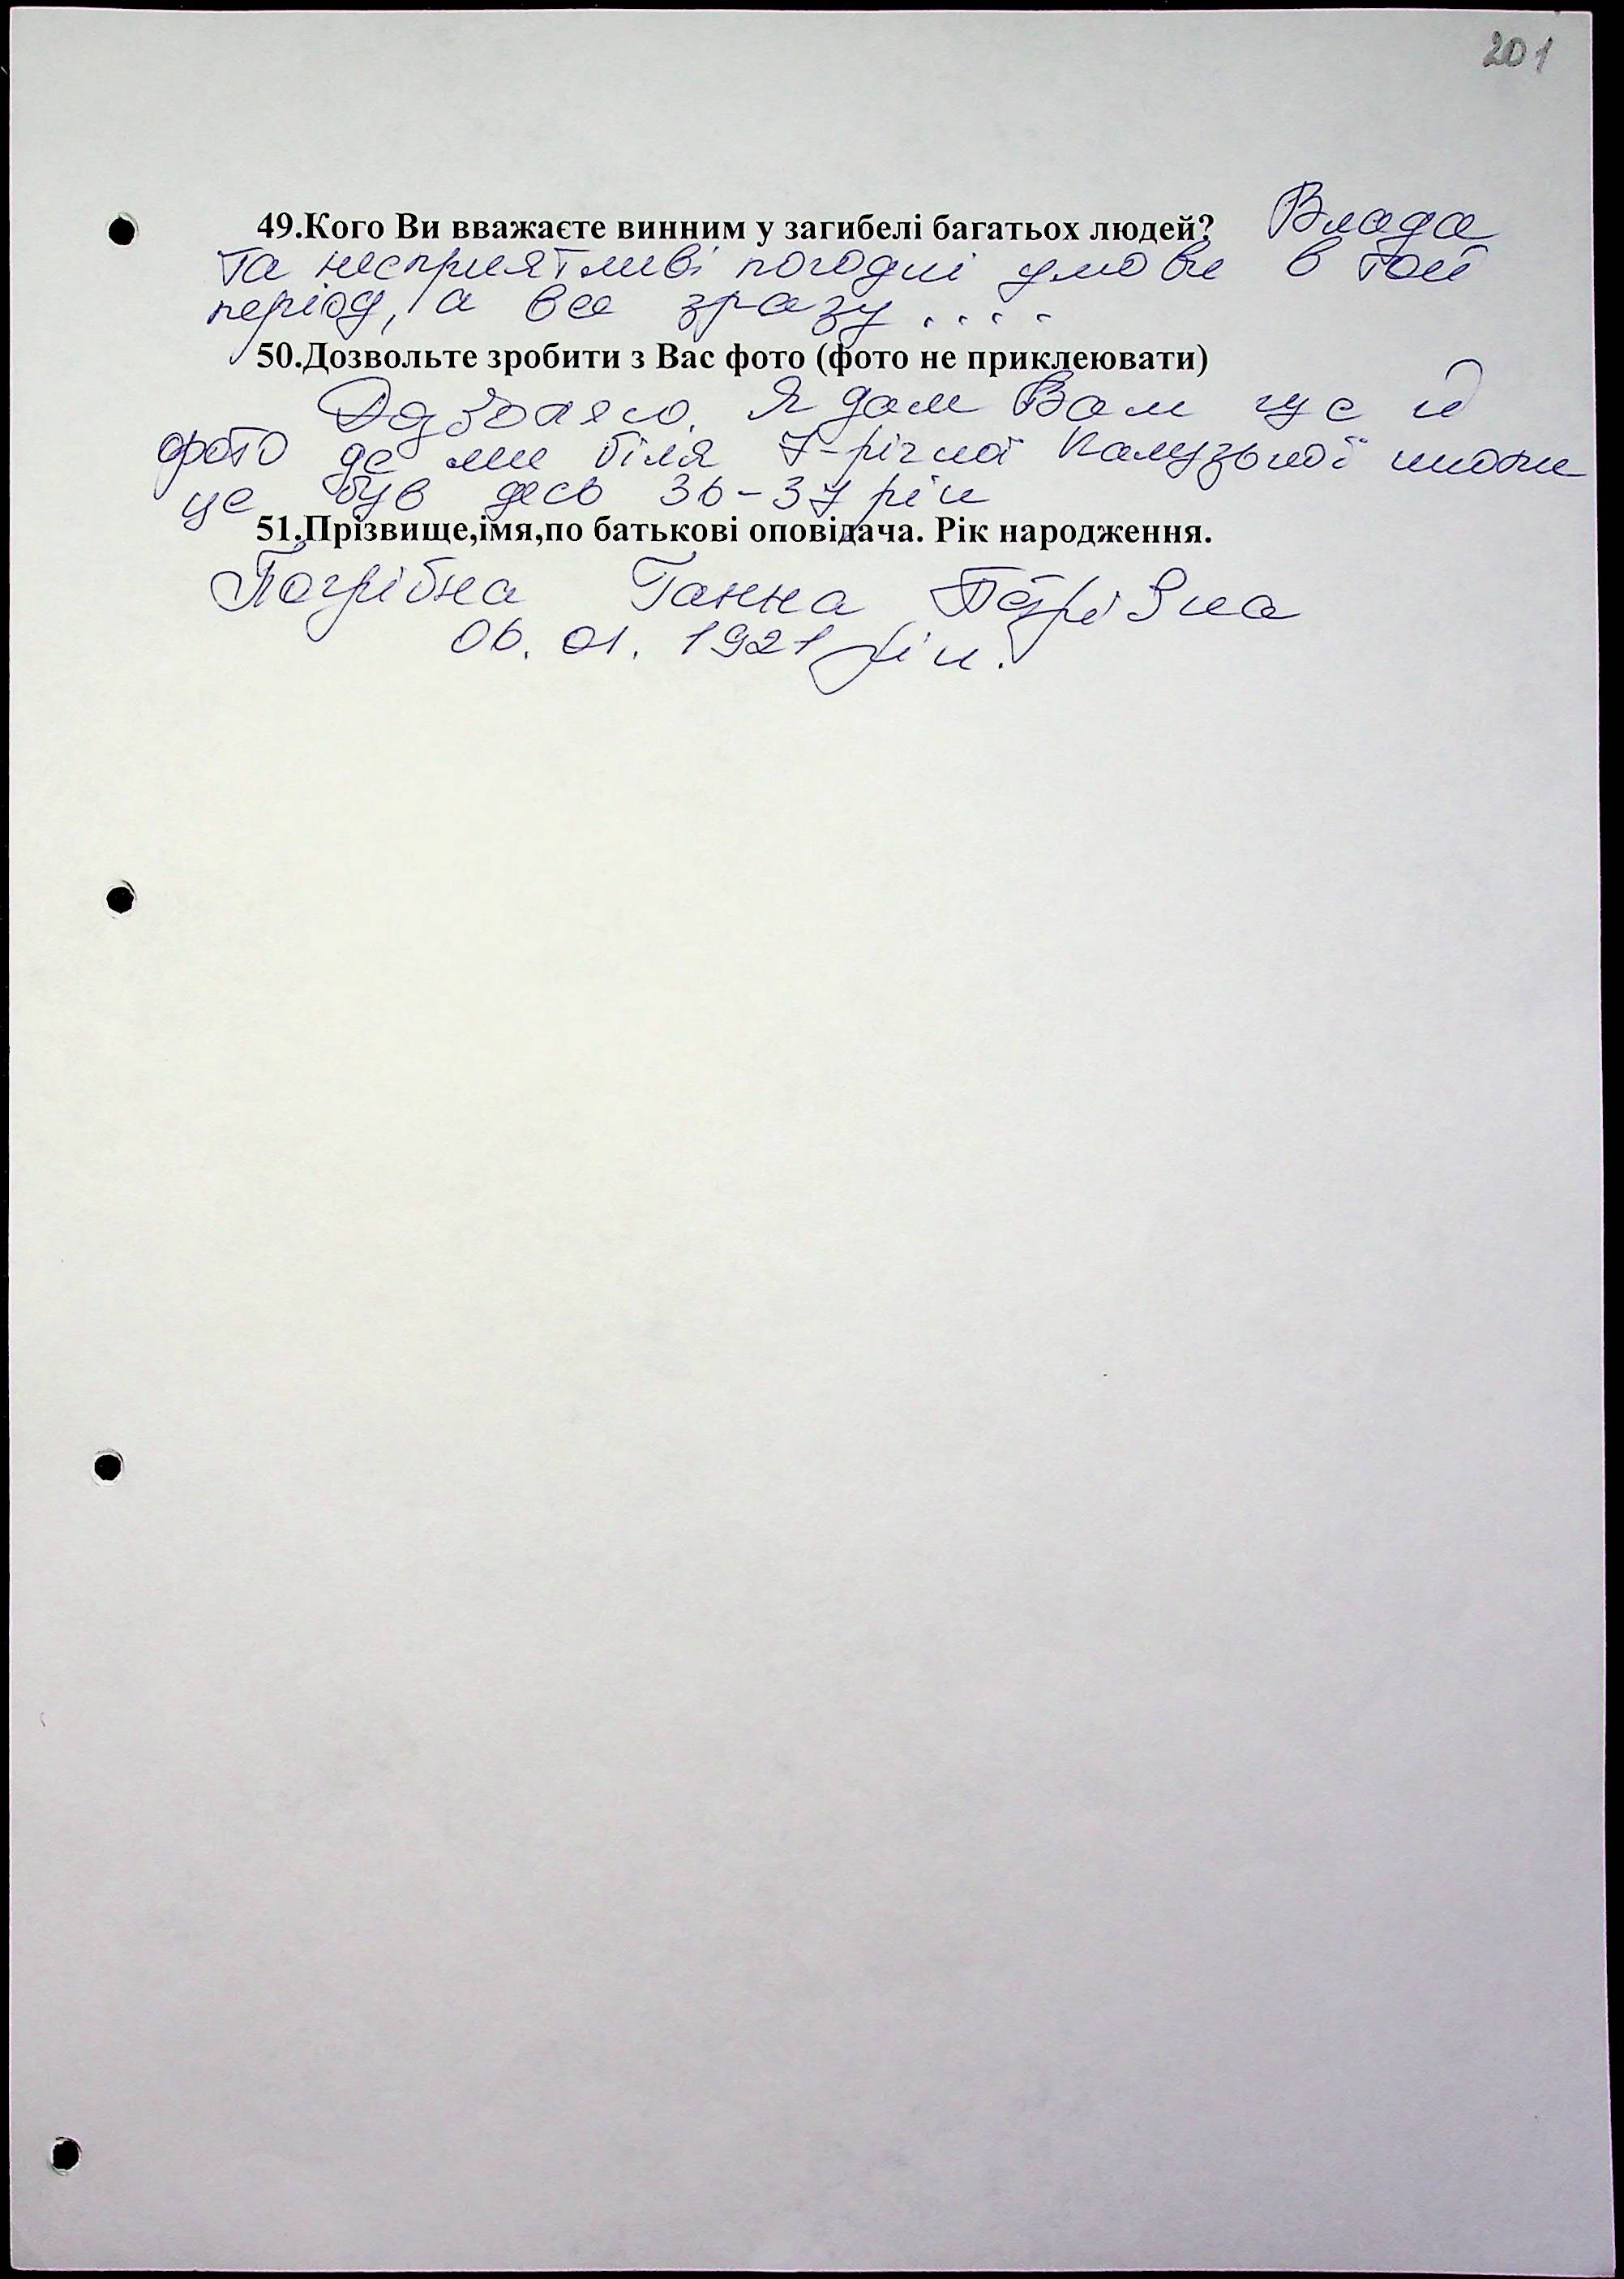 201
49.Кого Ви вважаєте винним у загибелі багатьох людей? Влада
та несприятливі погодні умови в той
період, а все зразу ....
50.Дозвольте зробити з Вас фото (фото не приклеювати)
Дозволяю. Я дам Вам ще й
фото де ми біля 7-річної школи
це був десь 36-37 рік
51.Прізвище,імя,по батькові оповідача. Рік народження.
Погрібна Ганна Петрівна
06. 01. 1921 рік.